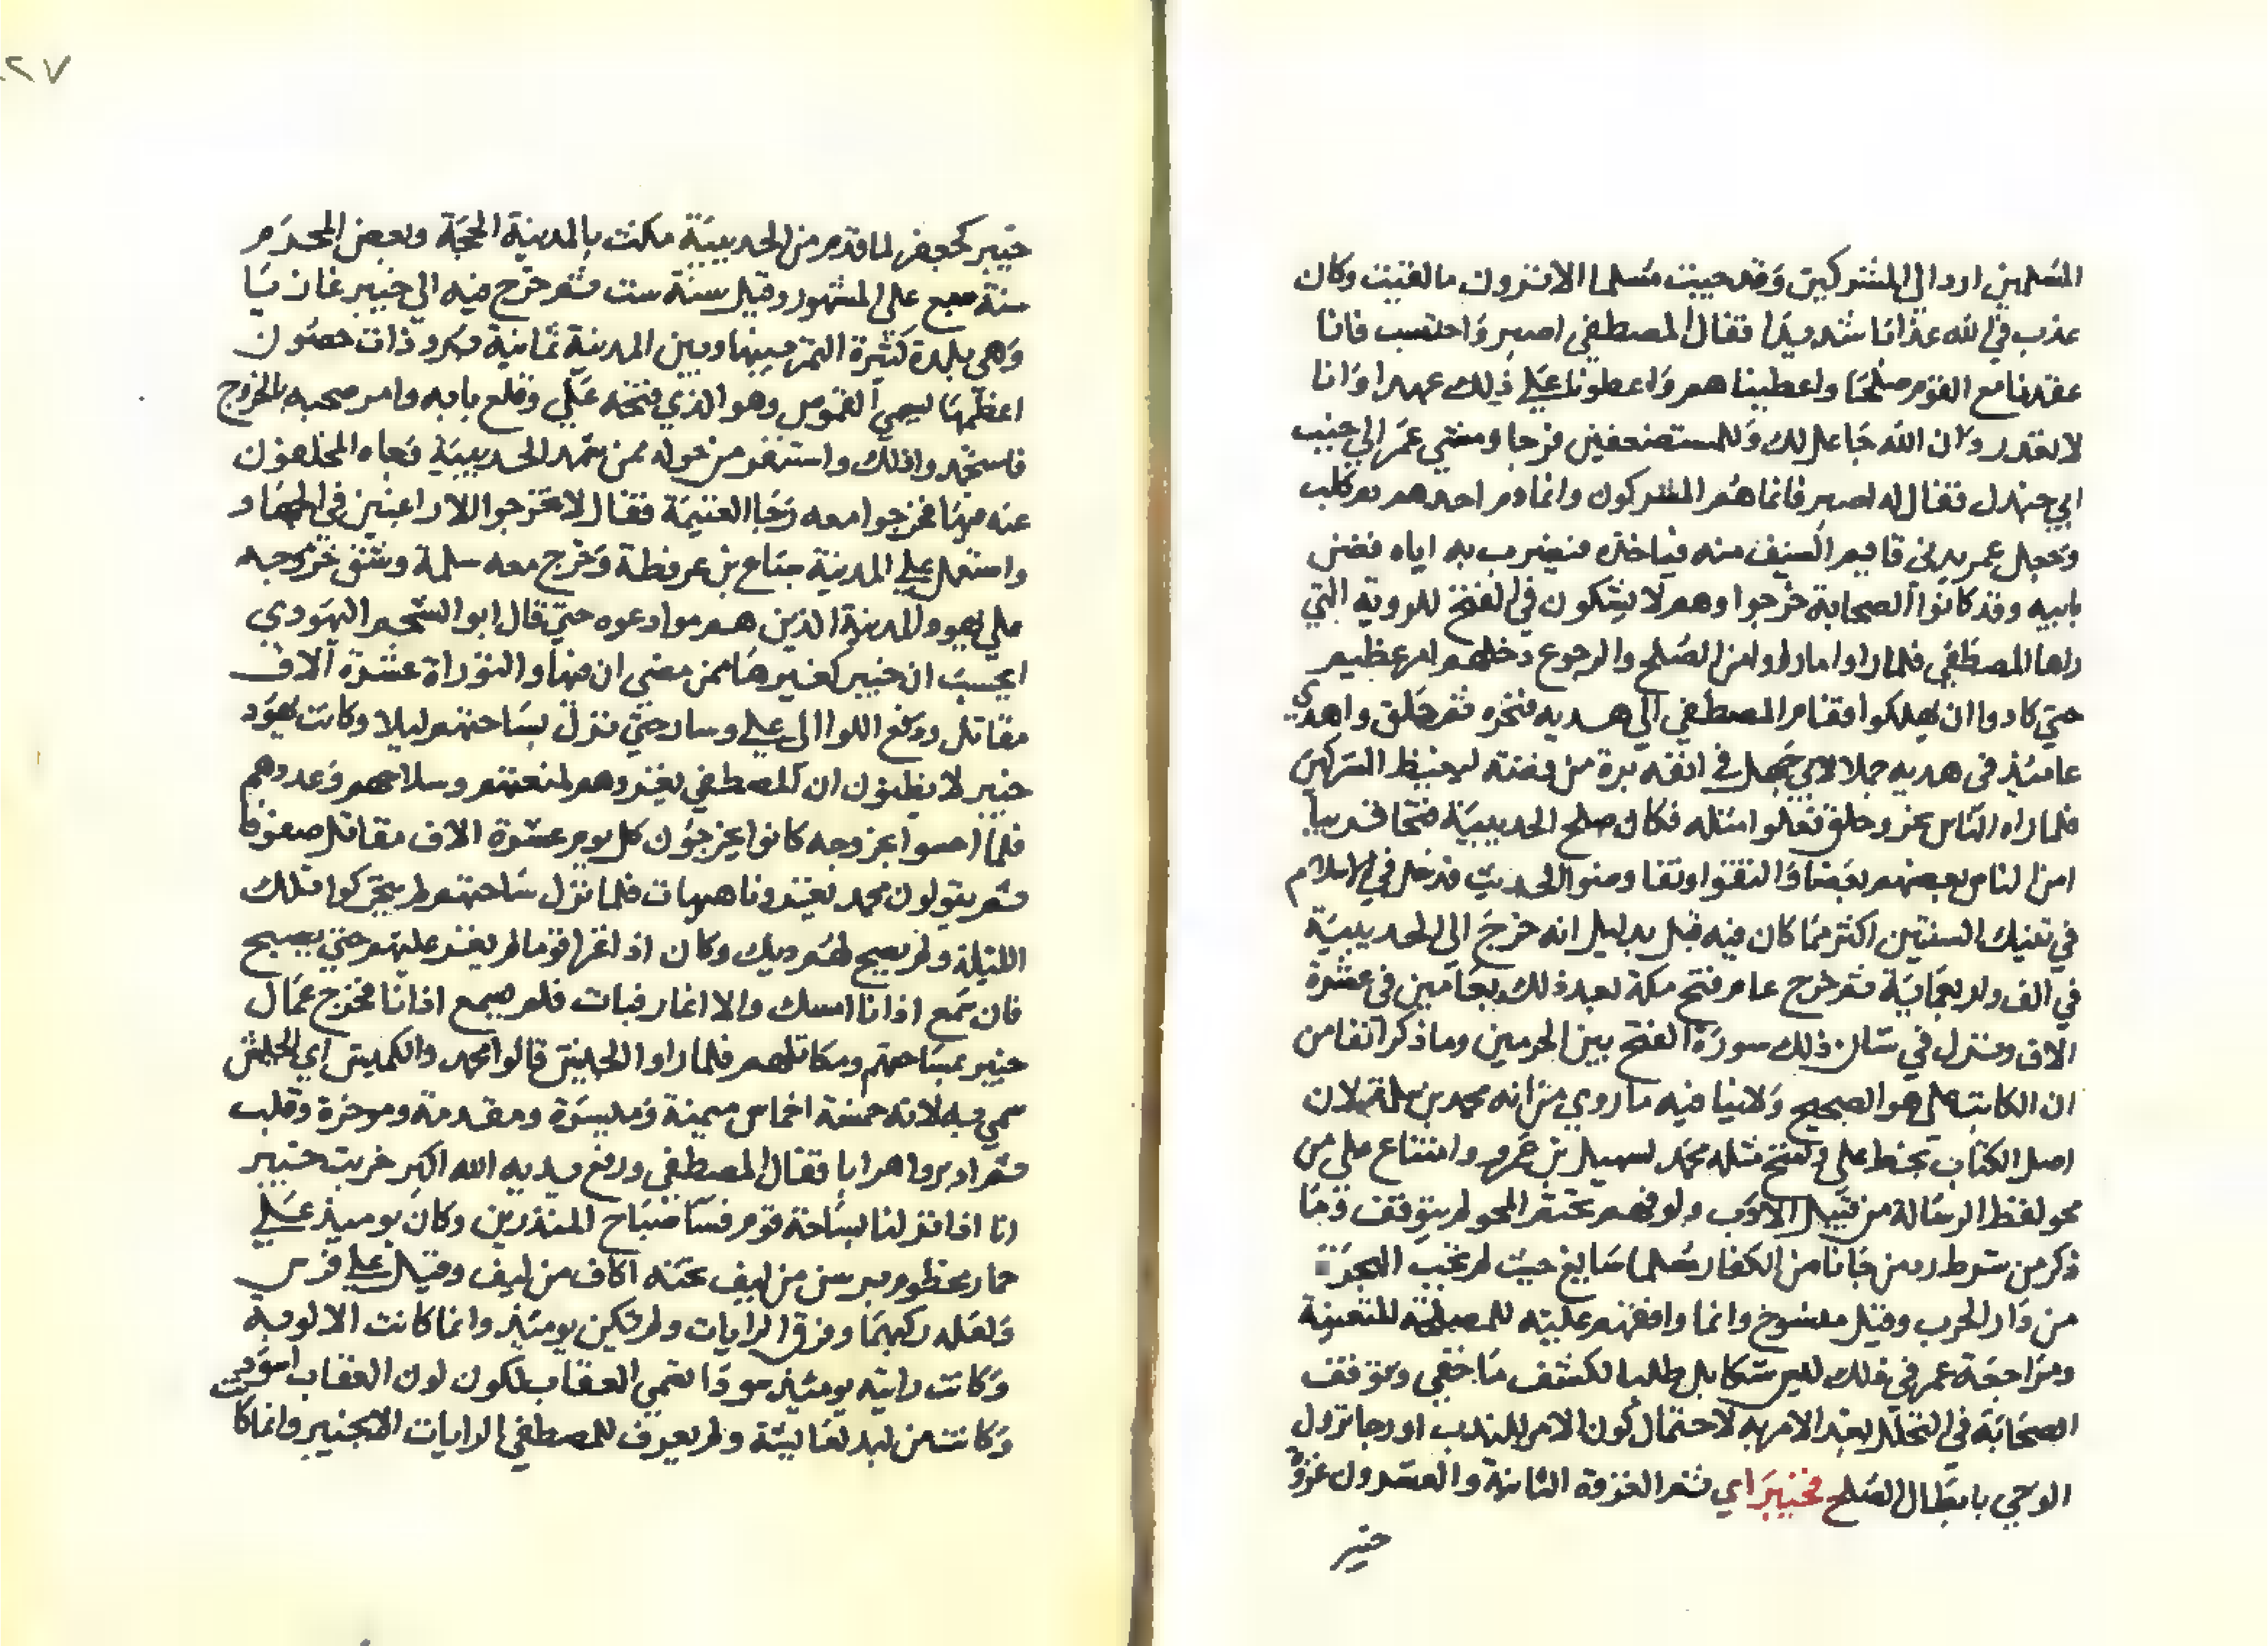 المسلمين ارد الي المشركين وقد جيت مسلما الا ترون ما لقيت وكان
عذب في الله عذابا شديدا فقال المصطفي اصبر واحتسب فانا
عقدنا مع القوم صلحا واعطيناهم واعطونا علي ذلك عهدا وانا
لا نغدر وان الله جاعل لك وللمستضعفين فرجا ومشي عمر الي جنب
ابي جندل فقال له اصبر فانما هم المشركون وانما دم احدهم دم كلب
وجعل عمر يدني قايم السيف منه لياخذه فيضرب به اباه فضن
بابيه وقد كانوا الصحابة خرجوا وهم لا يشكون في الفتح للروية التي
راها المصطفي فلما راوا ما راوا من الصلح والرجوع دخلهم امر عظيم
حتي كادوا ان يهلكوا فقام المصطفي الي هديه فنحره ثم حلق واهدي
عاميذ في هديه جملا لابي جهل في انفه برة من فضة ليغيظ المشركين
فلما راه الناس نحر وحلق فعلوا مثله فكان صلح الحديبية فتحا قريبا
امن الناس بعضهم بعضا والتقوا وتفاوضوا الحديث فدخل في الاسلام
في تينك السنتين اكثر مما كان فيه قبل بدليل انه خرج الي الحديبية
في الف واربعماية ثم خرج عام فتح مكة بعد ذلك بعامين في عشرة
الاف ونزل في شان ذلك سورة الفتح بين الحرمين وما ذكر آنفا من
ان الكاتب علي هو الصحيح ولا ينافيه ما روي من انه محمد بن مسلمة لان
اصل الكتاب بخط علي ونسخ مثله محمد لسهيل بن عمرو وامتناع علي من
محو لفظ الرسالة من قبيل الادب ولو فهم تحتم المحو لم يتوقف وما
ذكر من شرط رد من جانا من الكفار مسلما سايغ حيث لم تجب الهجرة
من دار الحرب وقيل منسوخ وانما وافقهم عليه للمصلحة المتعينة
ومراجعة عمر في ذلك ليس شكا بل طلبا لكشف ما خفي وتوقف
الصحابة في التحلل بعد الامر به لاحتمال كون الامر للندب او رجا نزول
الوحي بابطال الصلح فخيبر اي ثم الغزوة الثانية والعشرون غزوة
خيبر
٢٧
خيبر كجعفر لما قدم من الحديبية مكث بالمدينة الحجة وبعض المحرم
سنة سبع علي المشهور وقيل سنة ست ثم خرج فيه الي خيبر غازيا
وهي بلدة كثيرة التمر بينها وبين المدينة ثمانية برد ذات حصون
اعظمها يسمي القموص وهو الذي فتحه علي وقلع بابه وامر صحبه بالخروج
فاستجدوا لذلك واستنفر من حوله ممن شهد الحديبية فجاه المخلفون
عنه فيها فخرجوا معه رجا الغنيمة فقال لا تخرجوا الا راغبين في الجهاد
واستعمل علي المدينة سباع بن عرفطة وخرج معه سلمة وشق خروجه
علي يهود المدينة الذين هم موادعوه حتي قال ابو الشحم اليهودي
ايحسب ان خيبر كغيرها ممن مضي ان فيها والتوراة عشرة آلاف
مقاتل ودفع اللوا الي علي وسار حتي نزل بساحتهم ليلا وكانت يهود
خيبر لا يظنون ان المصطفي يغزوهم لمنعتهم وسلاحهم وعددهم
فلما احسوا بخروجه كانوا يخرجون كل يوم عشرة الاف مقاتل صفوفا
ثم يقولون محمد يغزونا هيهات فلما نزل ساحتهم لم يتحركوا تلك
الليلة ولم يصح لهم ديك وكان اذا غزا قوما لم يغز عليهم حتي يصبح
فان سمع اذانا امسك والا اغار فبات فلم يسمع اذانا فخرج عمال
خيبر بمساحيهم ومكاتلهم فلما راوا الجيش قالوا محمد والخميس اي الجيش
سمي به لانه خمسة اخماس ميمنة وميسرة ومقدمة وموخرة وقلب
ثم ادبروا هرابا فقال المصطفي ورفع يديه الله اكبر خربت خيبر
انا اذا نزلنا بساحة قوم فسا صباح المنذرين وكان يوميذ علي
حمار مخطوم برسن من ليف تحته اكاف من ليف وقيل علي فرس
ولعله ركبهما وفرق الرايات ولم تكن يوميذ وانما كانت الالوية
وكانت رايته يوميذ سودا تسمي العقاب لكون لون العقاب اسود
وكانت من لعايشة ولم يعرف للمصطفي الرايات الا بخيبر وانما كانت